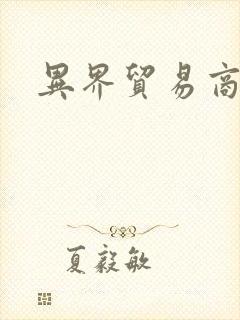 異界貿易商
夏毅敏